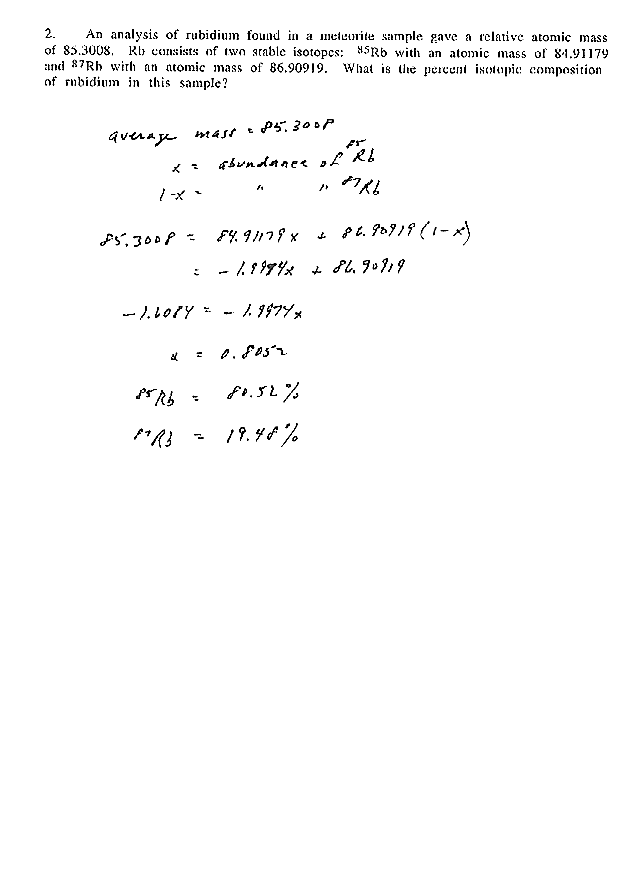 2. An analysis of rubidium found in a meteorite sample gave a relative atomic mass
of 85.3008. Rb consists of two stable isotopes: ⁸⁵Rb with an atomic mass of 84.91179
and ⁸⁷Rb with an atomic mass of 86.90919. What is the percent isotopic composition
of rubidium in this sample?
average mass = 85.3008
x = abundance of ⁸⁵Rb
1-x = " " ⁸⁷Rb
85.3008 = 84.91179x + 86.90919(1-x)
= -1.9974x + 86.90919
-1.6084 = -1.9974x
x = 0.8052
⁸⁵Rb = 80.52%
⁸⁷Rb = 19.48%